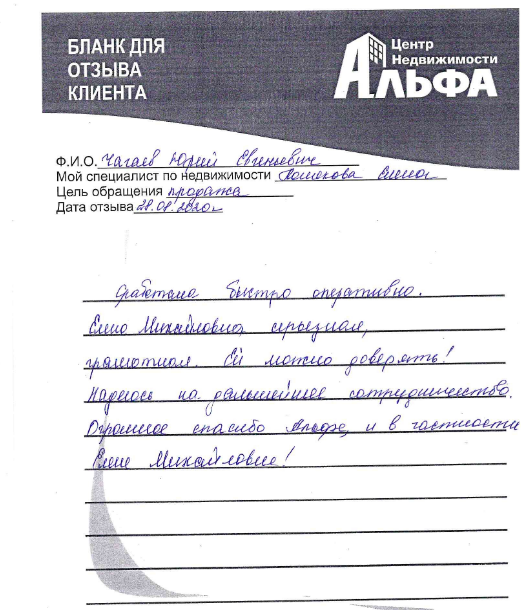 БЛАНК ДЛЯ
ОТЗЫВА
КЛИЕНТА
Центр
Недвижимости
АЛЬФА
Ф.И.О. Чагаев Юрий Евгеньевич
Мой специалист по недвижимости Елена
Цель обращения продажа
Дата отзыва
Сработала быстро оперативно.
Елена Михайловна серьезная,
грамотная. Ей можно доверять!
Надеюсь на дальнейшее сотрудничество.
Огромное спасибо Альфе, и в частности
Елене Михайловне!